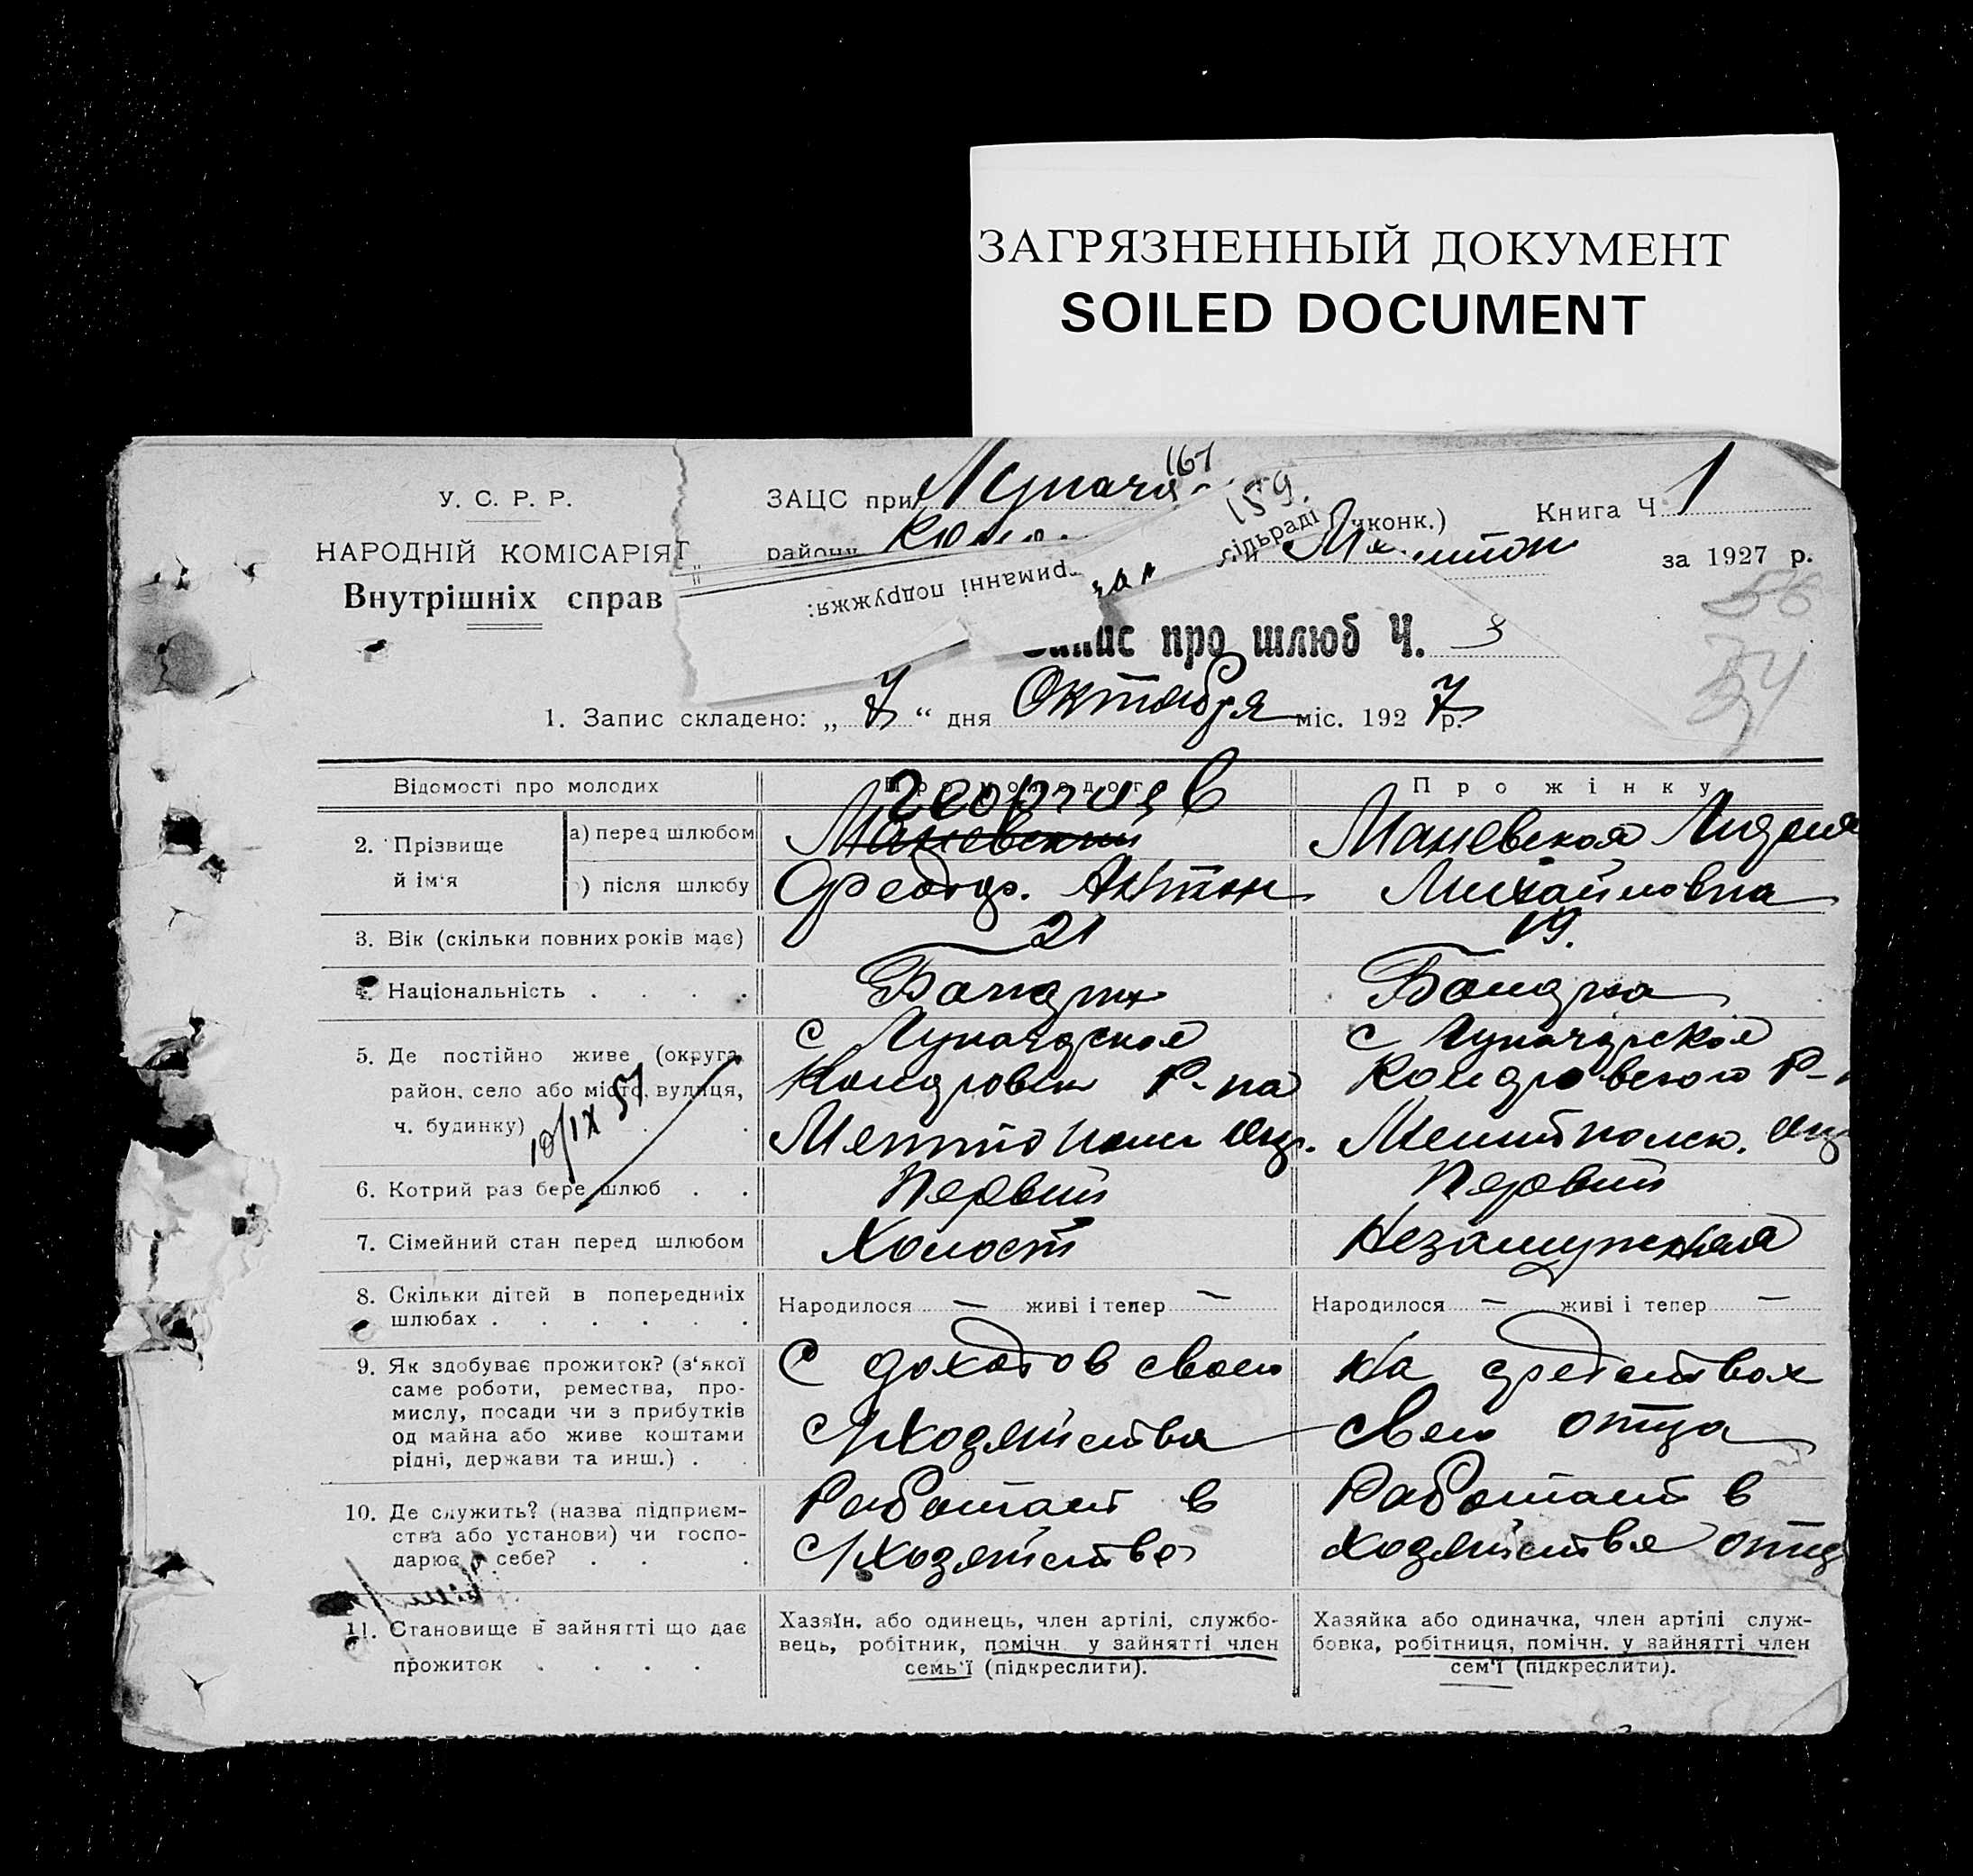 ЗАГРЯЗНЕННЫЙ ДОКУМЕНТ
SOILED DOCUMENT
У. С. Р. Р.
НАРОДНІЙ КОМІСАРІЯТ
Внутрішніх справ
ЗАЦС при
167
159.
району
сільраді
чконк.)
Книга Ч. 1
за 1927 р.
риманні подружжя:
56
54
Запис про шлюб Ч. 3
1. Запис складено: „ 7 “ дня Октября міс. 1927 р.
Відомості про молодих
Про жінку
2. Прізвище й ім'я
а) перед шлюбом
) після шлюбу
Георгиев
Маневский
Федор. Антон
Маневская Лидия
Михайловна
3. Вік (скільки повних років має)
21
19.
4. Національність . . . .
5. Де постійно живе (округа,
район, село або місто, вулиця,
ч. будинку)
10/IX 51
с Луначарское
Р-на
Мелитопольск Окр.
с Луначарское
Р-
Мелитополск. Окр
6. Котрий раз бере шлюб . .
Первый
Первый
7. Сімейний стан перед шлюбом
Холост
Незамужняя
8. Скільки дітей в попередніх
шлюбах . . . . . .
Народилося — живі і тепер —
Народилося — живі і тепер —
9. Як здобуває прожиток? (з'якої
саме роботи, ремества, про-
мислу, посади чи з прибутків
од майна або живе коштами
рідні, держави та инш.) .
С доходов своего
С/хозяйства
На средствах
свего отца
10. Де служить? (назва підприєм-
ства або установи) чи госпо-
дарює у себе? . . .
Работает в
С/хозяйстве
Работает в
хозяйстве отца
11. Становище в зайнятті що дає
прожиток . . . .
Хазяїн, або одинець, член артілі, службо-
вець, робітник, помічн. у зайнятті член
семь'ї (підкреслити).
Хазяйка або одиначка, член артілі служ-
бовка, робітниця, помічн. у зайнятті член
сем'ї (підкреслити).